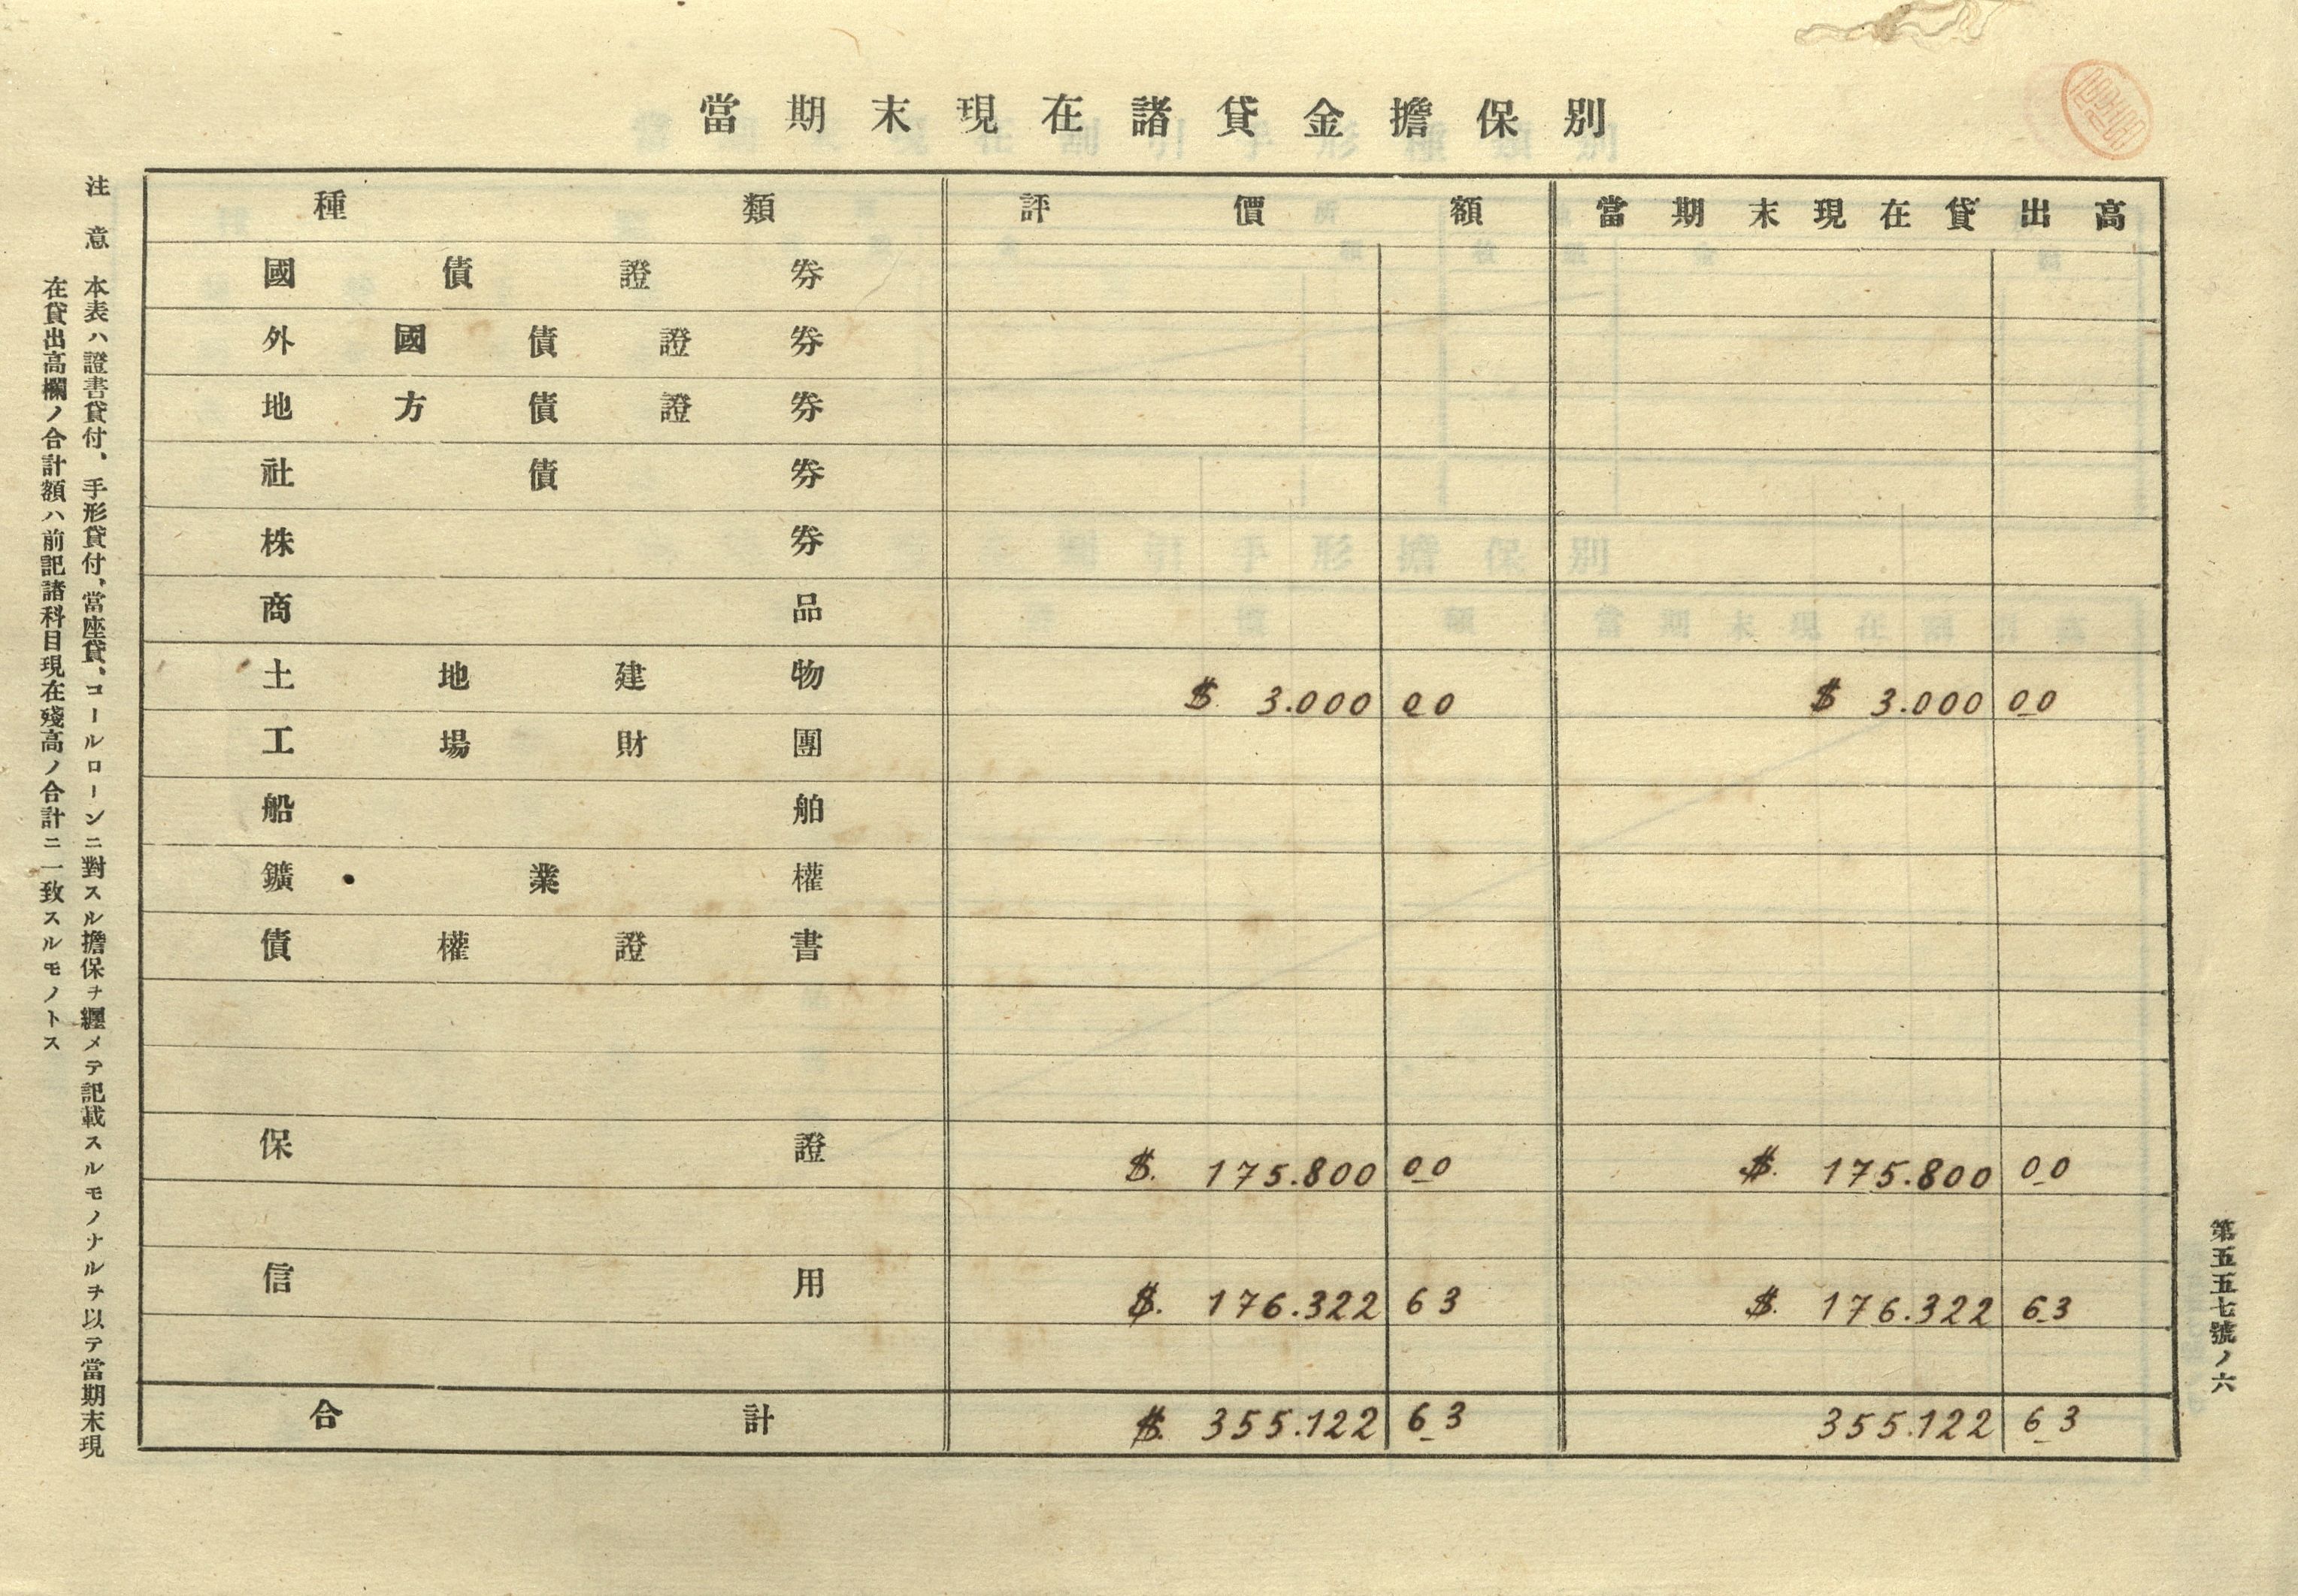 當期末現在諸貸金擔保別
種類 評價額 當期末現在貸出高
國債證券
外國債證券
地方債證券
社債券
株券
商品
土地建物 $ 3.000 00 $ 3.000 00
工場財團
船舶
鑛業權
債權證書
保證 $. 175.800 00 $. 175.800 00
信用 $. 176.322 63 $. 176.322 63
合計 $. 355.122 63 355.122 63
第五五七號ノ六
注意 本表ハ證書貸付、手形貸付、當座貸、コールローンニ對スル擔保ヲ纒メテ記載スルモノナルヲ以テ當期末現
在貸出高欄ノ合計額ハ前記諸科目現在殘高ノ合計ニ一致スルモノトス